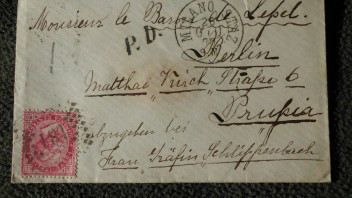 Monsieur le Baron de Lepel.
P.D.
MILANO STAZ
Berlin
Matthäi Kirch Straße 6
Prußia
abzugeben bei
Frau Gräfin Schlippenbach